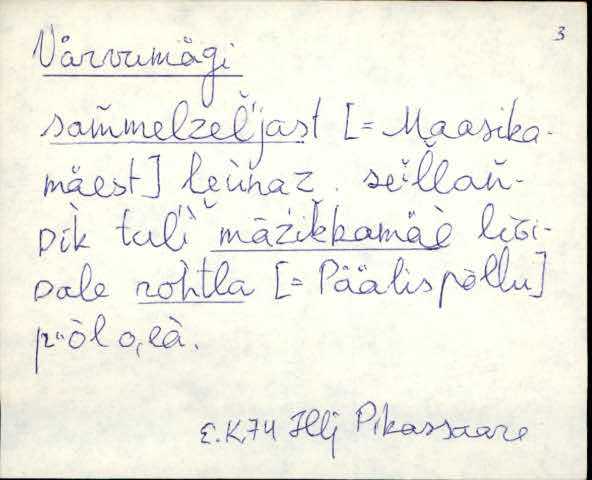 3
Värvumägi
sam̆melzel̆jast [= Maasika-
mäest] leùnaz. seĭl̆lan̆-
Dìk tulì màzìk̆kamäè lı̄ɢi-
Dale rohtla [= Päälispõllu]
p òl o,eà.
E.K,74 Hlj Pikassaare